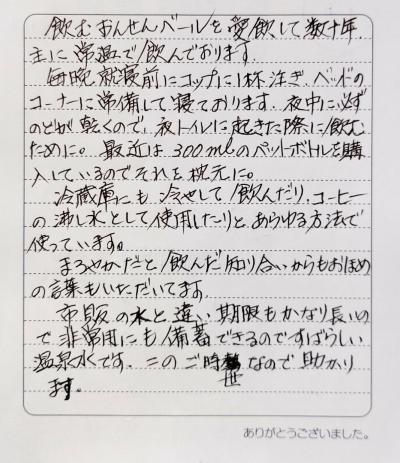 飲むおんせんベールを愛飲して数十年
主に常温で飲んでおります。
毎晩就寝前にコップに1杯注ぎ、ベッドの
コーナーに常備して寝ております。夜中に必ず
のどが乾くので、夜トイルに起きた際に飲む
ために。最近は300mlのペットボトルを購
入しているのでそれを枕元に。
冷蔵庫にも冷やして飲んだり、コーヒー
の沸し水として使用したりと、あらゆる方法で
使っています。
まろやかだと飲んだ知り合いからもおほめ
の言葉もいただいてます。
市販の水と違い期限もかなり長いの
で非常用にも備蓄できるのですばらしい
温泉水です。このご時世なので助かり
ます。
ありがとうございました。